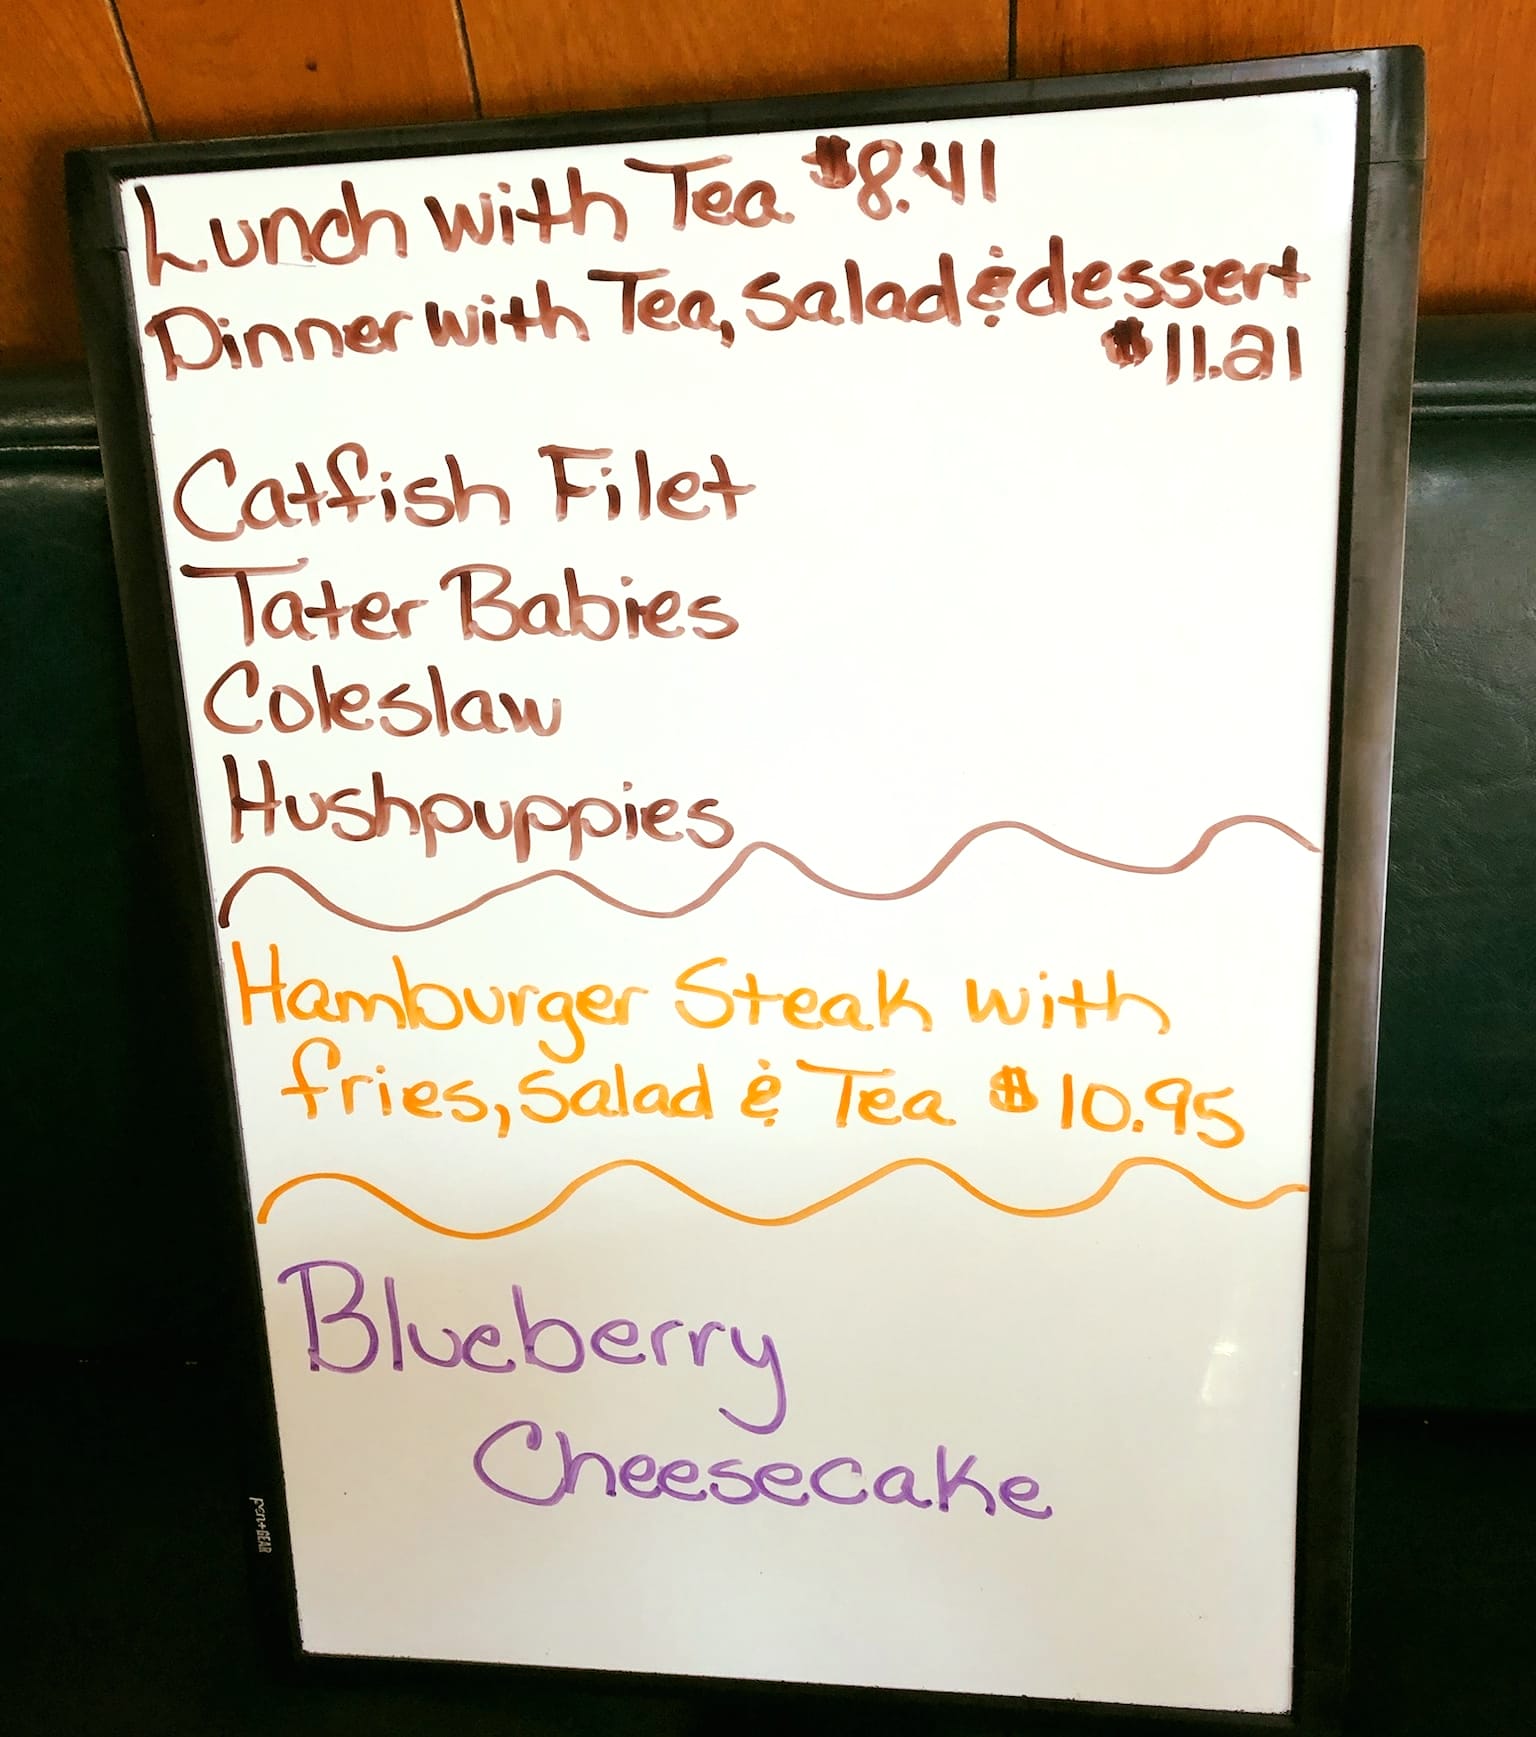 Lunch with Tea $8.41
Dinner with Tea, Salad & dessert
$11.21
Catfish Filet
Tater Babies
Coleslaw
Hushpuppies
Hamburger Steak with
fries, Salad & Tea $10.95
Blueberry
Cheesecake
pen+GEAR